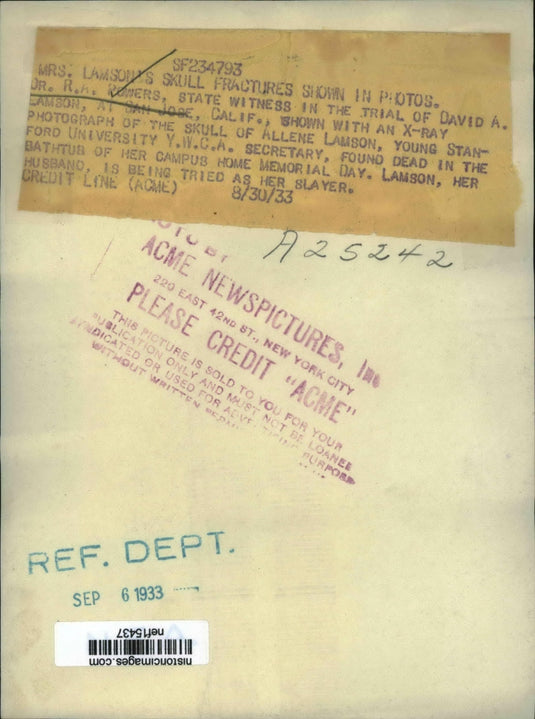 SF234793
MRS. LAMSON'S SKULL FRACTURES SHOWN IN PHOTOS.
DR. R.A. POWERS, STATE WITNESS IN THE TRIAL OF DAVID A.
LAMSON, AT SAN JOSE, CALIF., SHOWN WITH AN X-RAY
PHOTOGRAPH OF THE SKULL OF ALLENE LAMSON, YOUNG STAN-
FORD UNIVERSITY Y.W.C.A. SECRETARY, FOUND DEAD IN THE
BATHTUB OF HER CAMPUS HOME MEMORIAL DAY. LAMSON, HER
HUSBAND, IS BEING TRIED AS HER SLAYER.
CREDIT LINE (ACME) 8/30/33
A25242
BY
ACME NEWSPICTURES, Inc
220 EAST 42ND ST., NEW YORK CITY
PLEASE CREDIT "ACME"
THIS PICTURE IS SOLD TO YOU FOR YOUR
PUBLICATION ONLY AND MUST NOT BE LOANED
SYNDICATED OR USED FOR ADVERTISING PURPOSE
WITHOUT WRITTEN
REF. DEPT.
SEP 6 1933
nef15437
historicimages.com